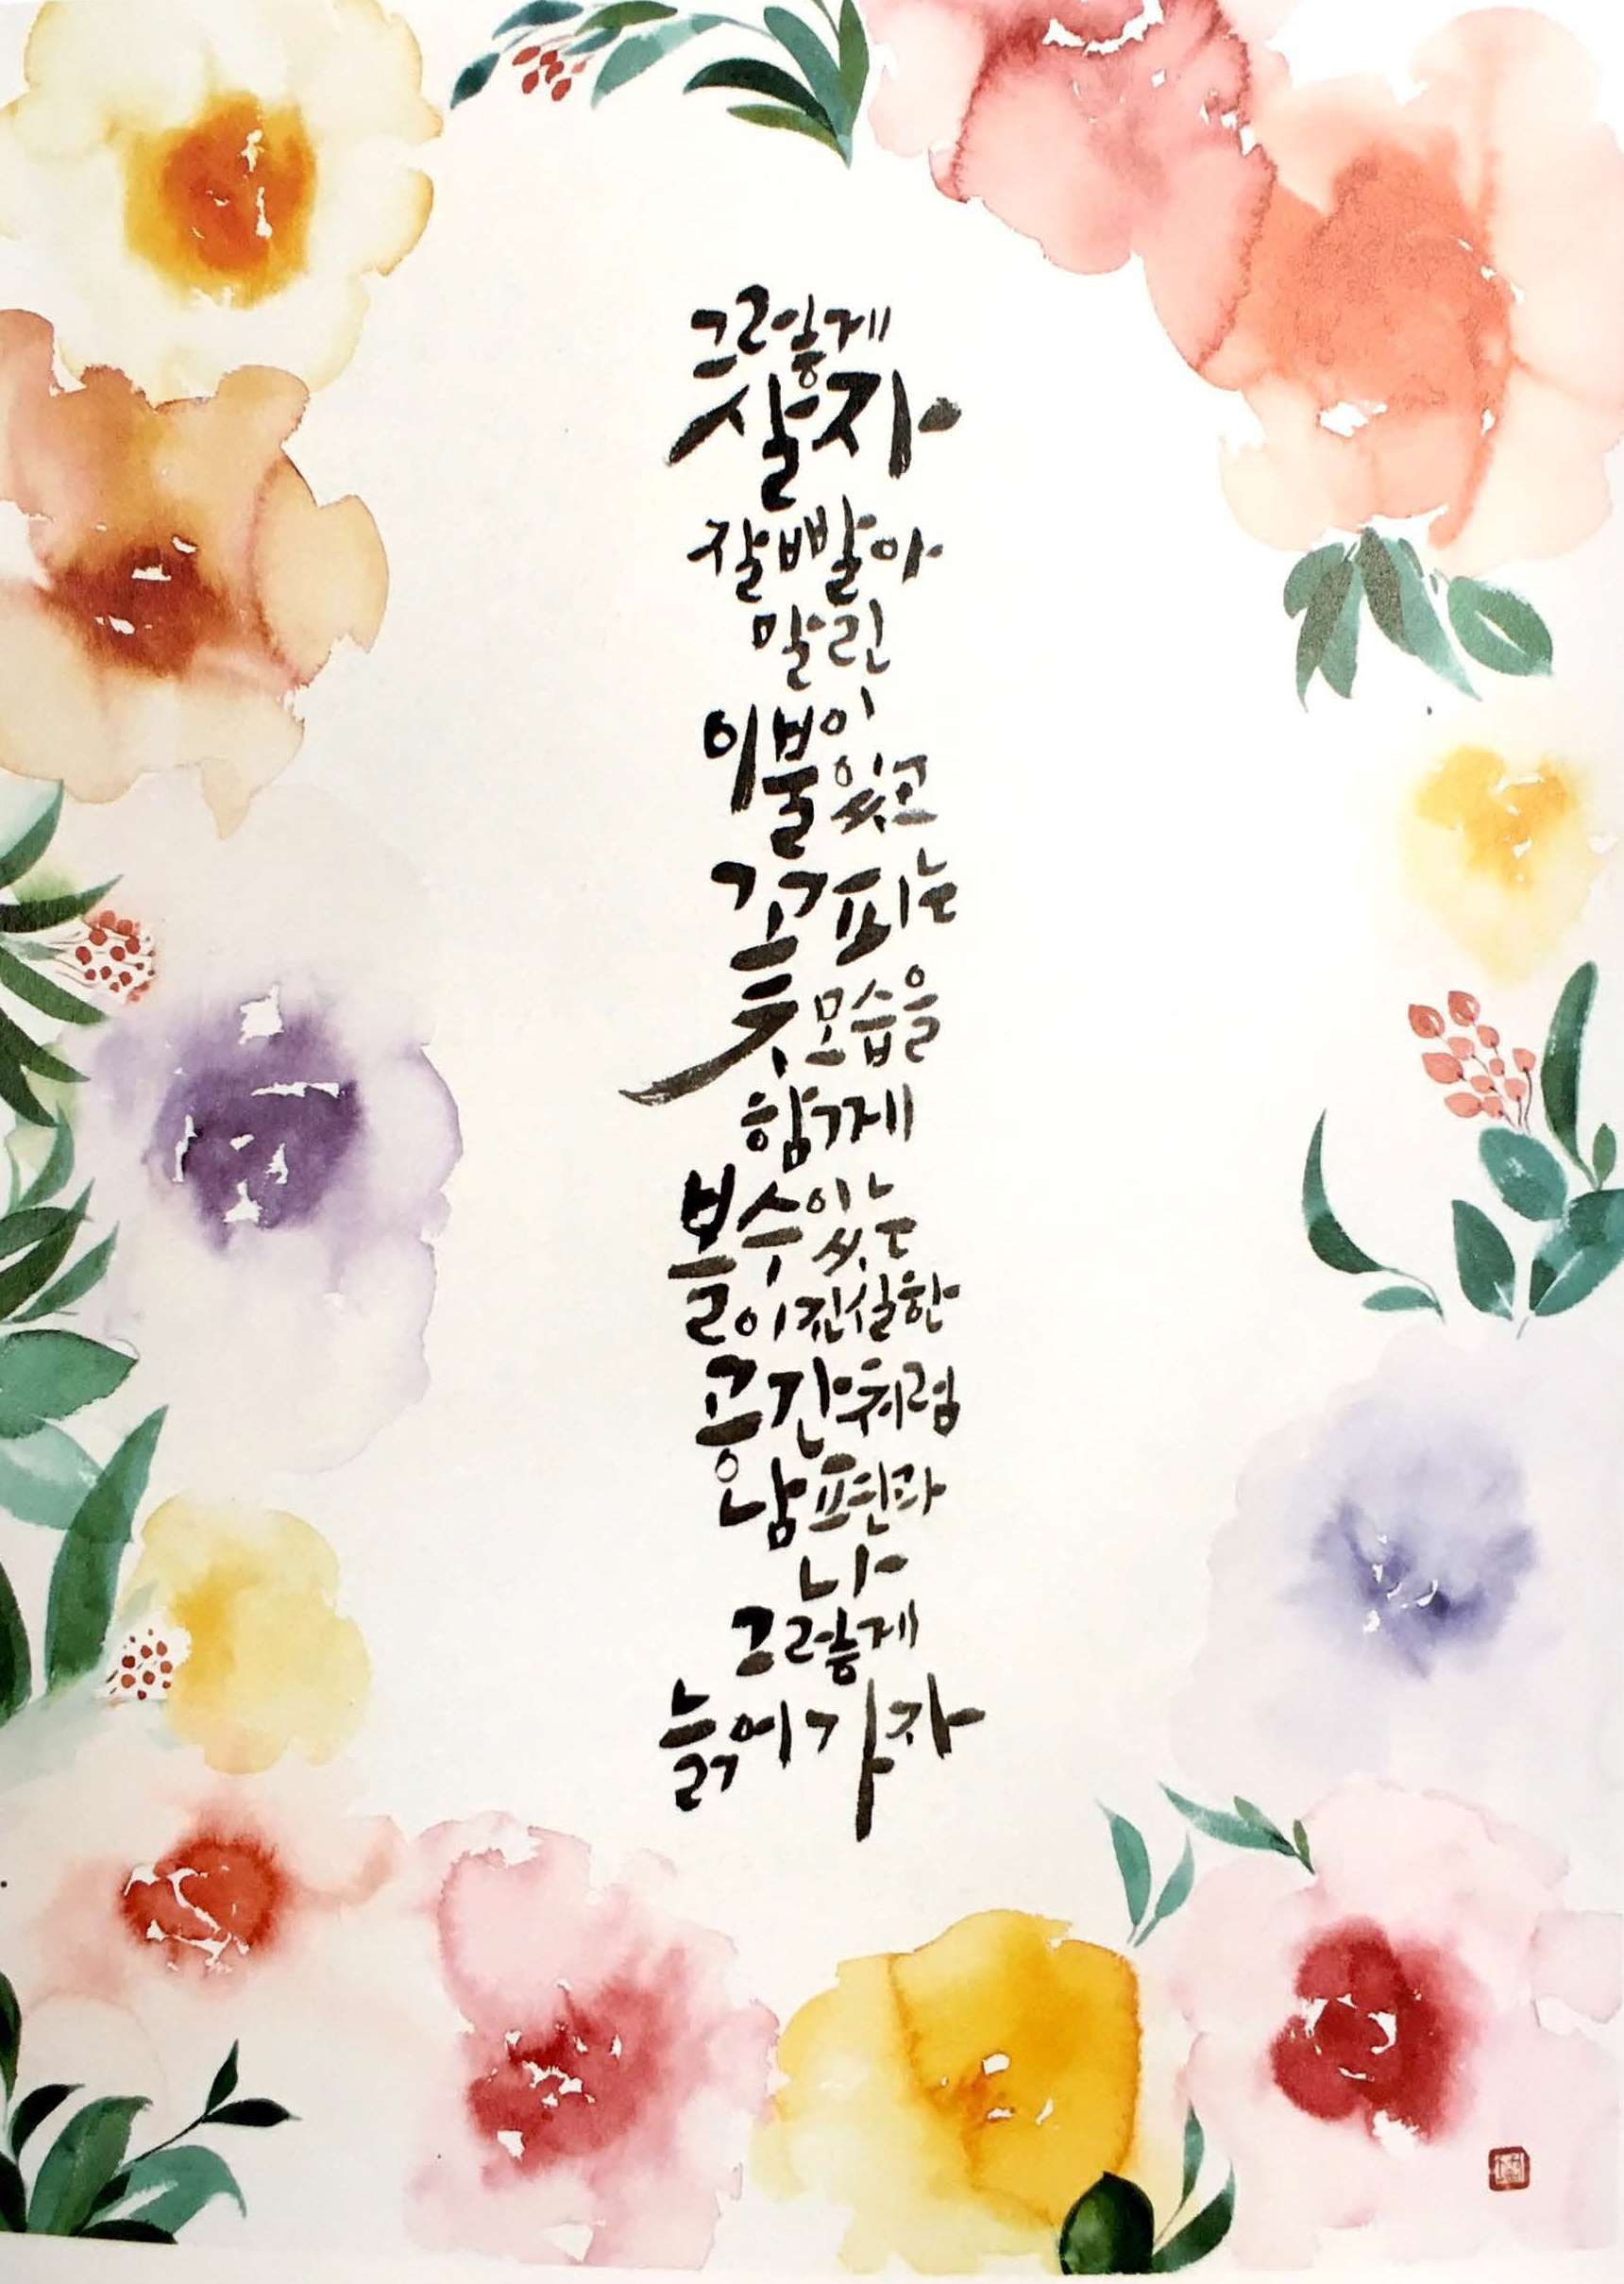 그렇게
살자
잘 빨아
말린
이불이
있고
꽃 피는
모습을
함께
볼 수 있는
이 진실한
공간처럼
남편과
나
그렇게
늙어가자